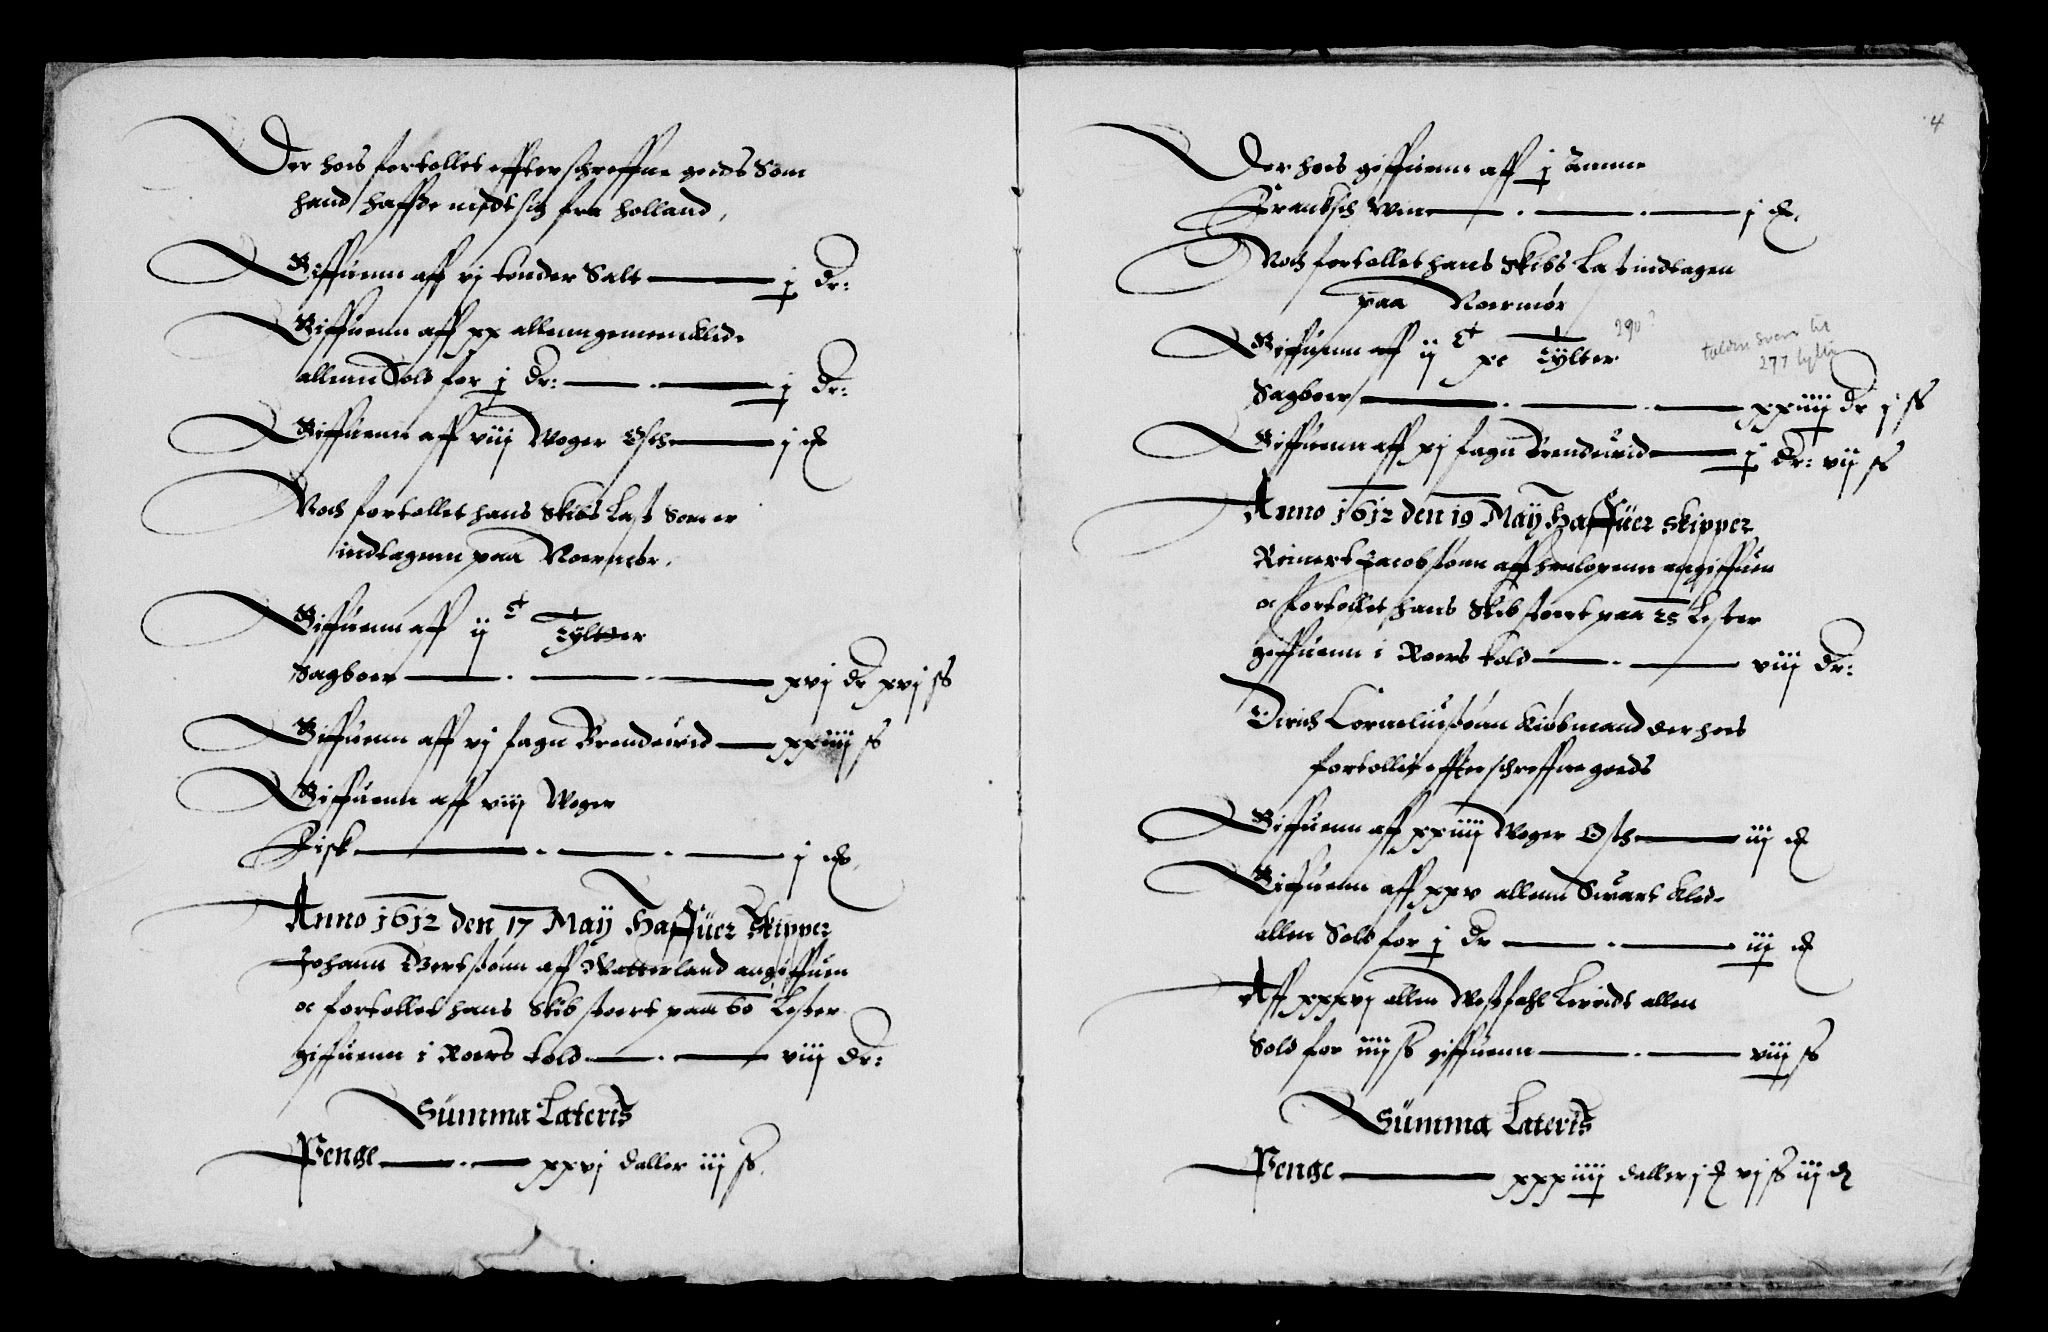 Der hoes fortollet effterschreffne goeds Som
hand haffde medt sig fra Holland,
Giffuenn aff vj tonder Salt j Dr:
Giffuenn aff xx allenn gemeen Klede
allenn Sold for j Dr: j Dr:
Giffuenn aff viij Woger Osth j
Noch fortollet hans Skibs Last Som er
indtagenn paa Noermør,
Giffuenn aff ij C Tylter
Sagboer xvj dr xvj ss
Giffuenn aff vj fagn Brendeuid xxiiij ss
Giffuenn aff viij Woger
Fisk j
Anno 1612 den 17 May Haffuer Skipper
Johann Gertssønn aff Watterland angiffuen
oc fortollet hans Skib stoert paa 60 Lester
giffuenn i Roers told viij Dr:
Summa Lateris
Penge xxvj daller iij ss.
4
Der hoes giffuenn aff j Amme
Frantsch Win j
Noch fortollet hans Skibs Last indtagen
paa Noermør
Giffuenn aff ij C xc Tylter
290?
Sagboer xxiiij Dr j ss
277 tylter
Giffuenn aff xj fagn Brendeuid j Dr: vij ss
Anno 1612 den 19 May Haffuer Skipper
Reinert Jacobssønn aff angiffuen
oc fortollet hans Skib stoert paa 25 Lester
giffuenn i Roers told viij Dr:
Dirich Corneliussønn Kiøbmand der hoes
fortollet effterschreffne goeds
Giffuenn aff xxiiij Woger Osth iij
Giffuenn aff xxv allenn Swart Klede
allen Sold for j Dr iij
Aff xxxvj allen Westfahl Lerridt allen
Sold for iiij ss giffuenn viij ss
Summa Lateris
Penge xxxiiij daller j vj ss iij